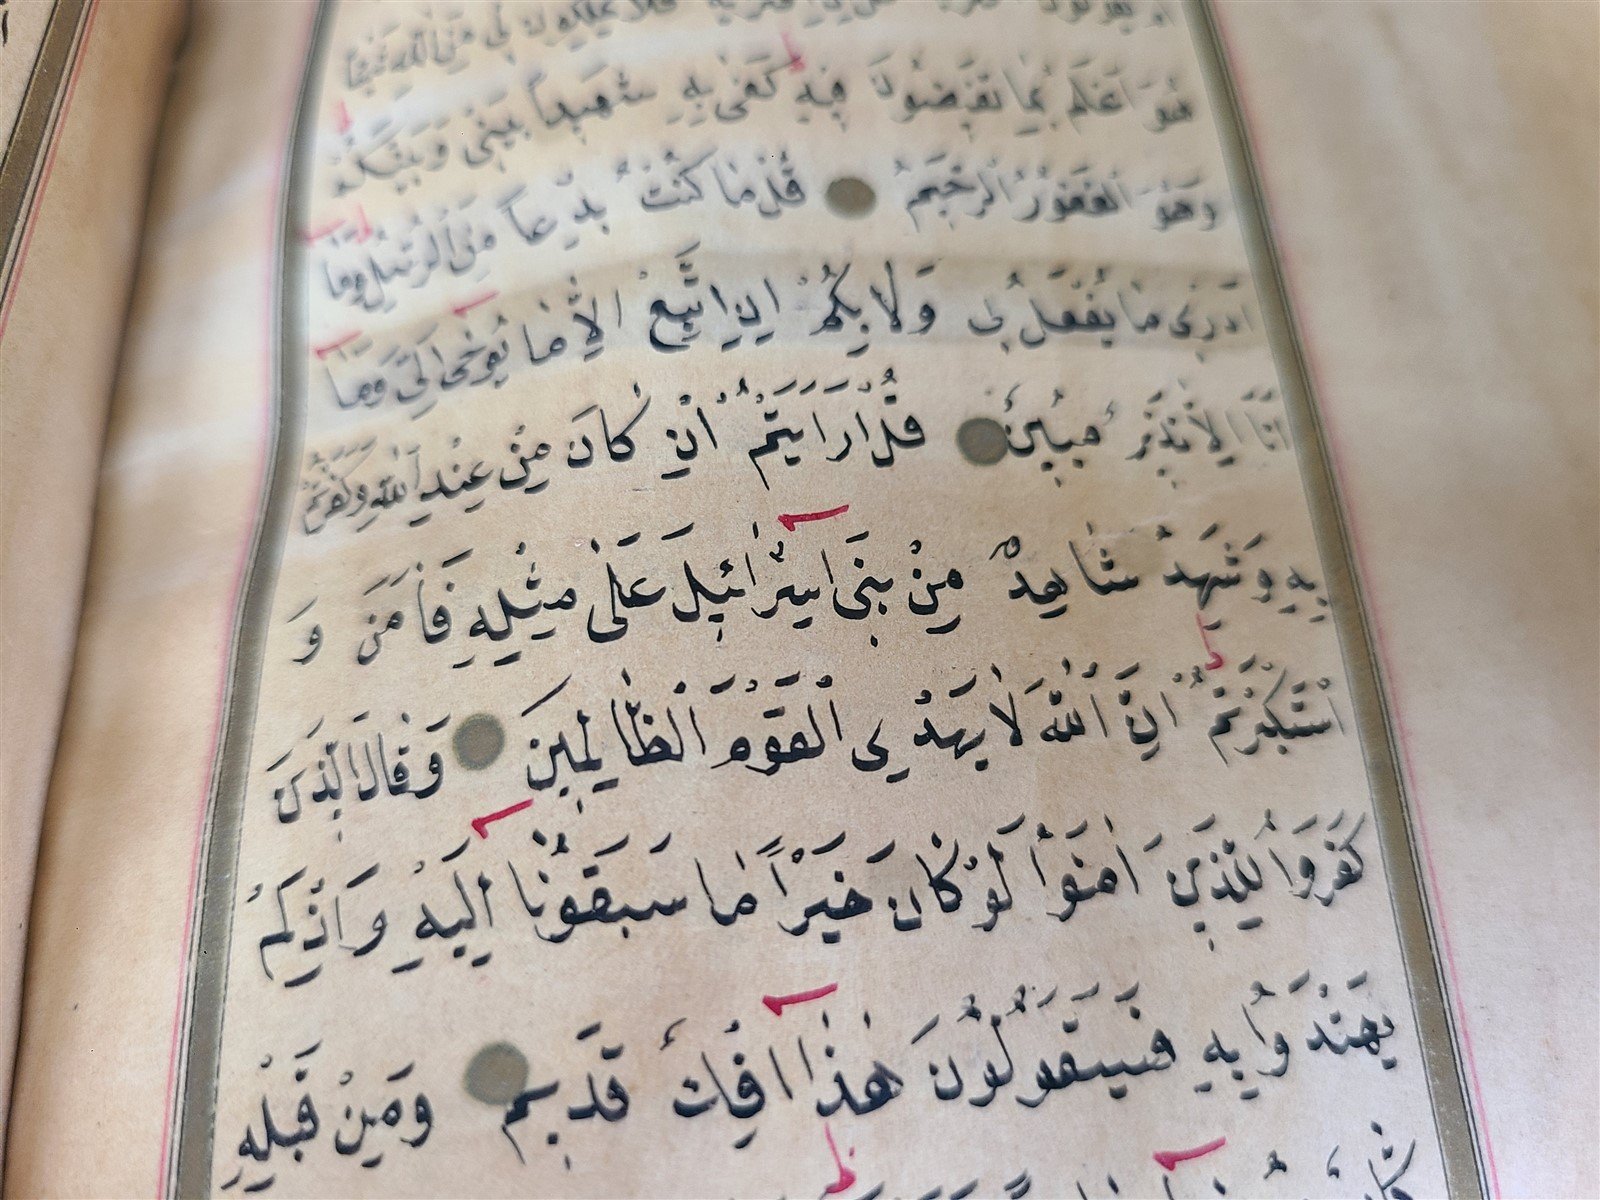 فلا تملكون لي من الله شيئا
هُوَ اَعْلَمُ بِمَا تُفِيضُونَ فِيهِ كَفٰى بِهِ شَهِيدًا بَيْنِى وَبَيْنَكُمْ
وَهُوَ الْغَفُورُ الرَّحِيمُ قُلْ مَا كُنْتُ بِدْعًا مِنَ الرُّسُلِ وَمَا
اَدْرِى مَا يُفْعَلُ بِى وَلَا بِكُمْ اِنْ اَتَّبِعُ اِلَّا مَا يُوحٰى اِلَىَّ وَمَا
اَنَا۬ اِلَّا نَذِيرٌ مُبِينٌ قُلْ اَرَاَيْتُمْ اِنْ كَانَ مِنْ عِنْدِ اللّٰهِ وَكَفَرْتُمْ
بِهِ وَشَهِدَ شَاهِدٌ مِنْ بَنِى اِسْرَٰائِيلَ عَلٰى مِثْلِهِ فَاٰمَنَ وَ
اسْتَكْبَرْتُمْ اِنَّ اللّٰهَ لَا يَهْدِى الْقَوْمَ الظَّالِمِينَ وَقَالَ الَّذِينَ
كَفَرُوا لِلَّذِينَ اٰمَنُوا لَوْ كَانَ خَيْرًا مَا سَبَقُونَا اِلَيْهِ وَاِذْ لَمْ
يَهْتَدُوا بِهِ فَسَيَقُولُونَ هٰذَا اِفْكٌ قَدِيمٌ وَمِنْ قَبْلِهِ